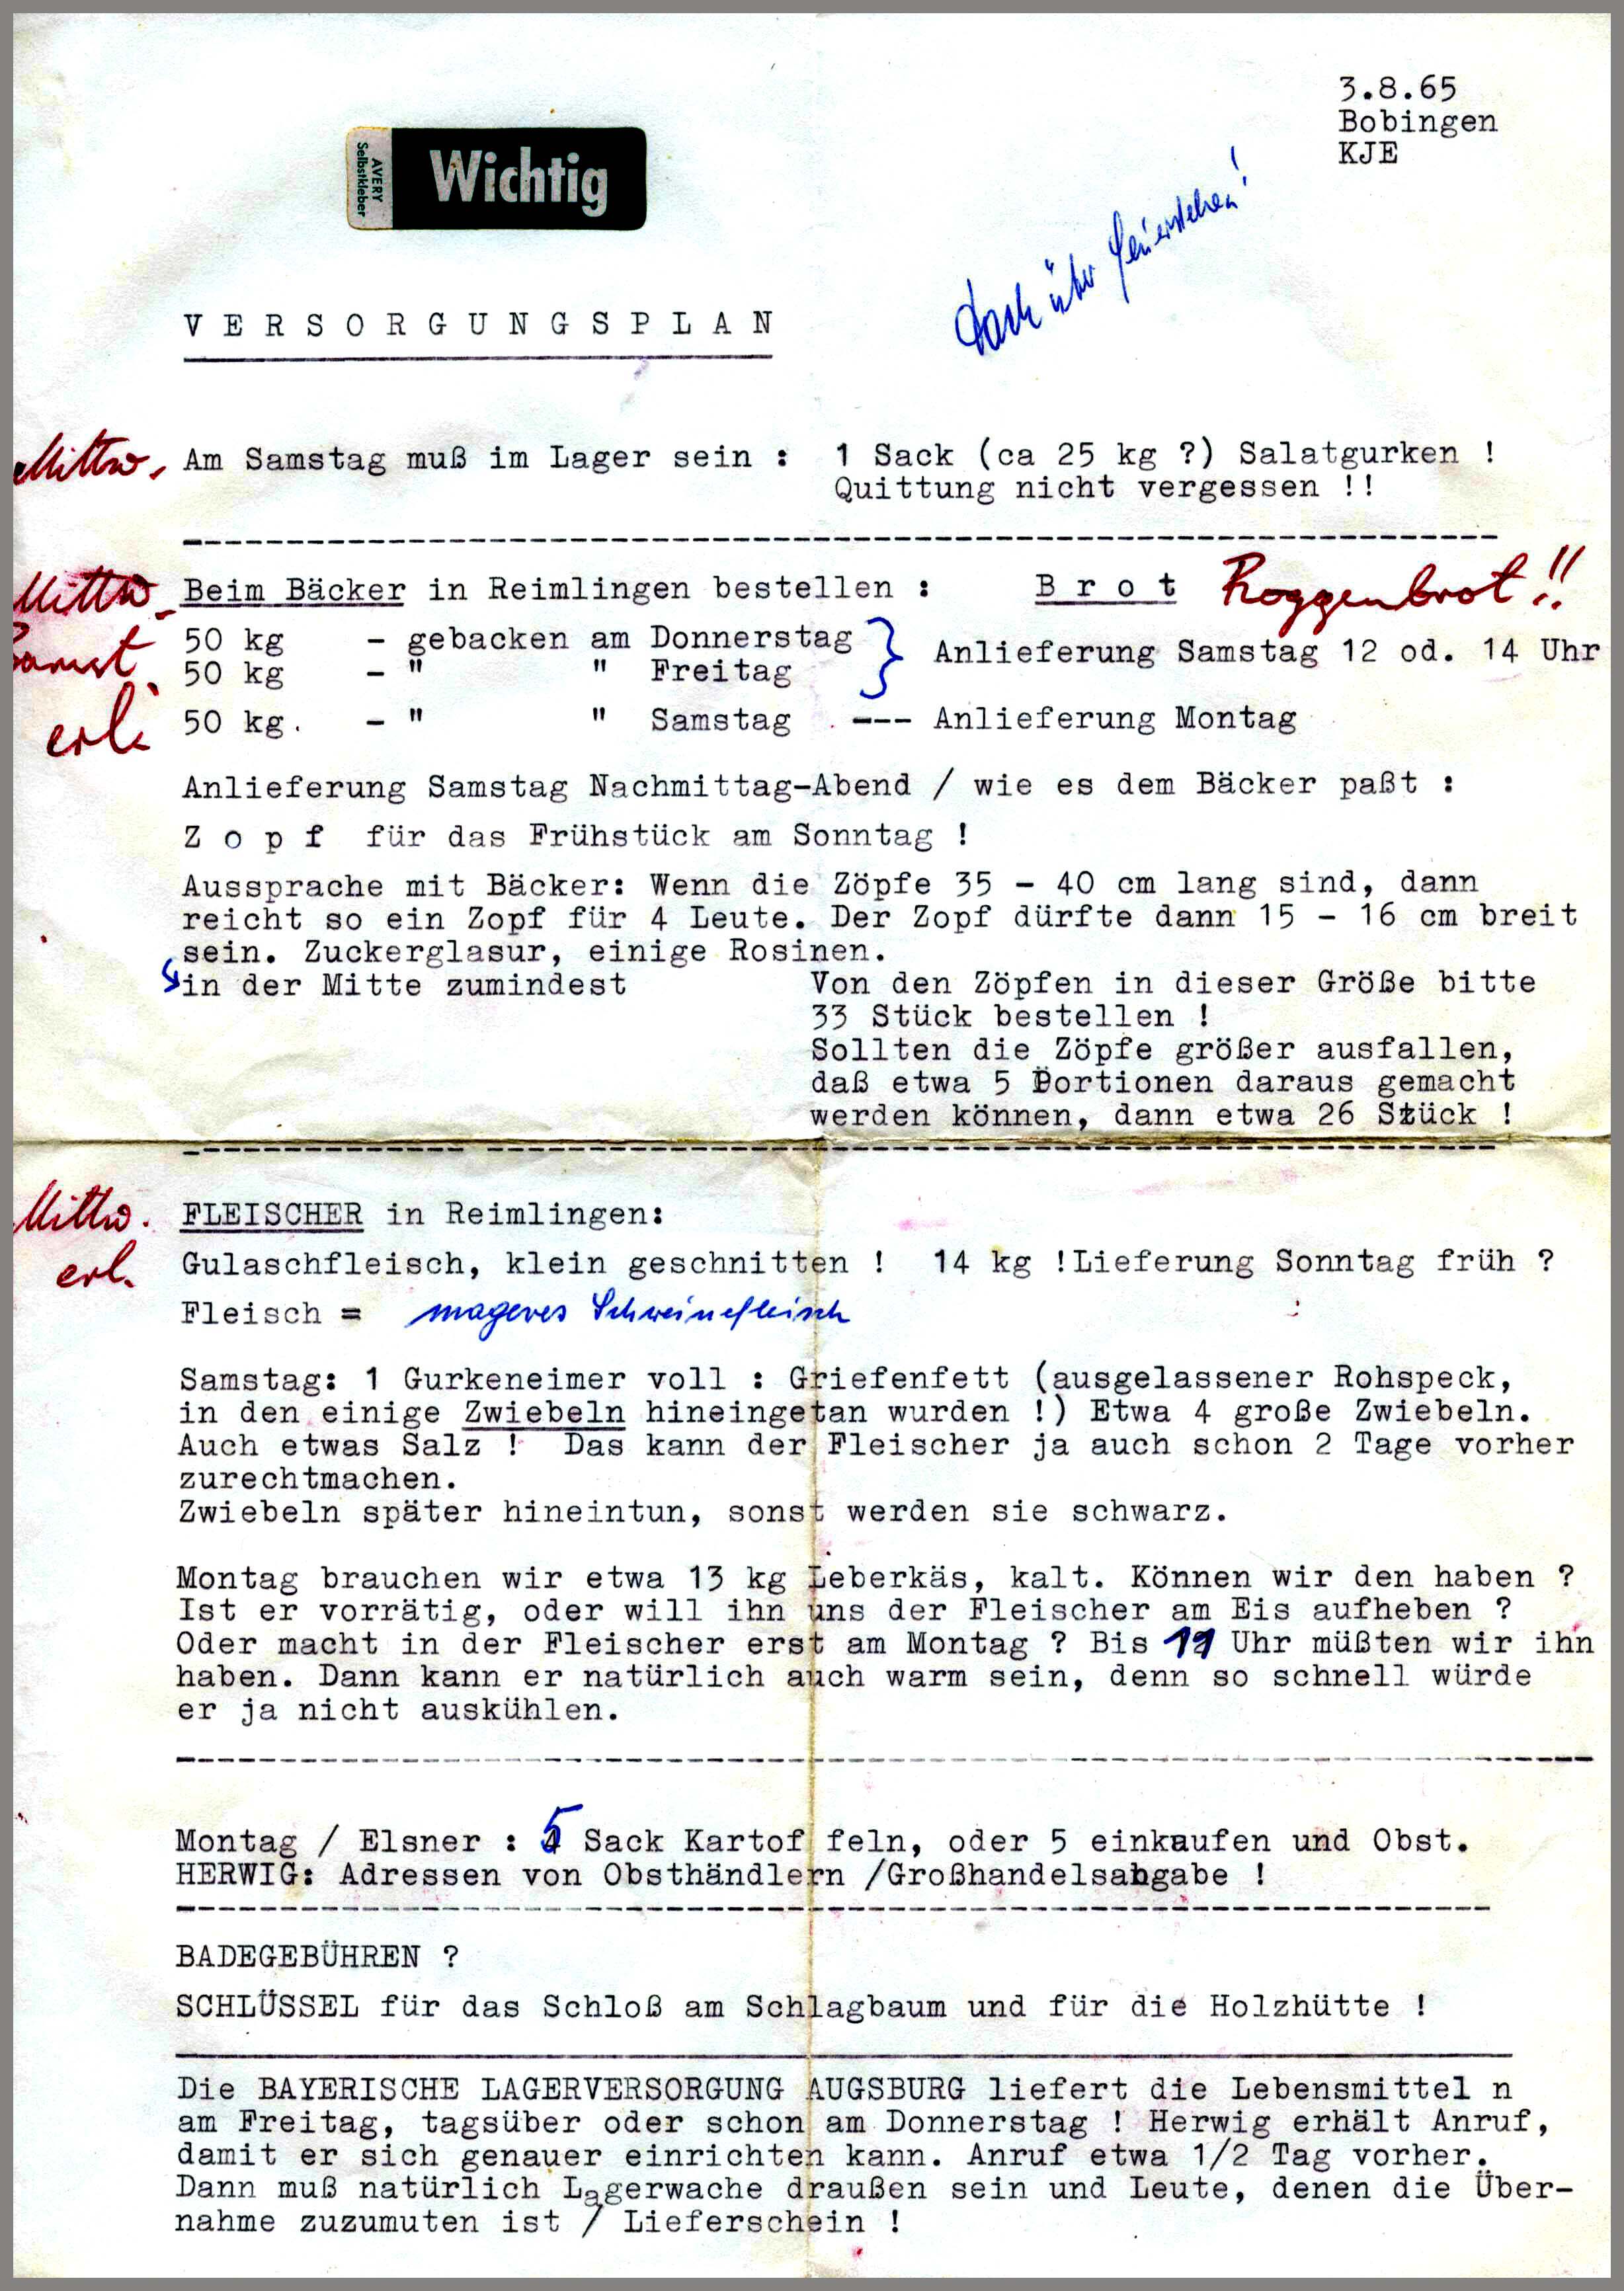 3.8.65
Bobingen
KJE
AVERY
Selbstkleber
Wichtig
Dach über Feuerstellen!
VERSORGUNGSPLAN
Mittw. Am Samstag muß im Lager sein : 1 Sack (ca 25 kg ?) Salatgurken !
Quittung nicht vergessen !!
Mittw. Beim Bäcker in Reimlingen bestellen : B r o t Roggenbrot !!
50 kg - gebacken am Donnerstag } Anlieferung Samstag 12 od. 14 Uhr
Samst. 50 kg - " " Freitag
erl. 50 kg. - " " Samstag --- Anlieferung Montag
Anlieferung Samstag Nachmittag-Abend / wie es dem Bäcker paßt :
Z o p f für das Frühstück am Sonntag !
Aussprache mit Bäcker: Wenn die Zöpfe 35 - 40 cm lang sind, dann
reicht so ein Zopf für 4 Leute. Der Zopf dürfte dann 15 - 16 cm breit
sein. Zuckerglasur, einige Rosinen.
in der Mitte zumindest Von den Zöpfen in dieser Größe bitte
33 Stück bestellen !
Sollten die Zöpfe größer ausfallen,
daß etwa 5 Portionen daraus gemacht
werden können, dann etwa 26 Stück !
Mittw. FLEISCHER in Reimlingen:
erl. Gulaschfleisch, klein geschnitten ! 14 kg !Lieferung Sonntag früh ?
Fleisch = mageres Schweinefleisch
Samstag: 1 Gurkeneimer voll : Griefenfett (ausgelassener Rohspeck,
in den einige Zwiebeln hineingetan wurden !) Etwa 4 große Zwiebeln.
Auch etwas Salz ! Das kann der Fleischer ja auch schon 2 Tage vorher
zurechtmachen.
Zwiebeln später hineintun, sonst werden sie schwarz.
Montag brauchen wir etwa 13 kg Leberkäs, kalt. Können wir den haben ?
Ist er vorrätig, oder will ihn uns der Fleischer am Eis aufheben ?
Oder macht in der Fleischer erst am Montag ? Bis 11 Uhr müßten wir ihn
haben. Dann kann er natürlich auch warm sein, denn so schnell würde
er ja nicht auskühlen.
Montag / Elsner : 5 Sack Kartof feln, oder 5 einkaufen und Obst.
HERWIG: Adressen von Obsthändlern /Großhandelsabgabe !
BADEGEBÜHREN ?
SCHLÜSSEL für das Schloß am Schlagbaum und für die Holzhütte !
Die BAYERISCHE LAGERVERSORGUNG AUGSBURG liefert die Lebensmittel n
am Freitag, tagsüber oder schon am Donnerstag ! Herwig erhält Anruf,
damit er sich genauer einrichten kann. Anruf etwa 1/2 Tag vorher.
Dann muß natürlich Lagerwache draußen sein und Leute, denen die Über-
nahme zuzumuten ist / Lieferschein !